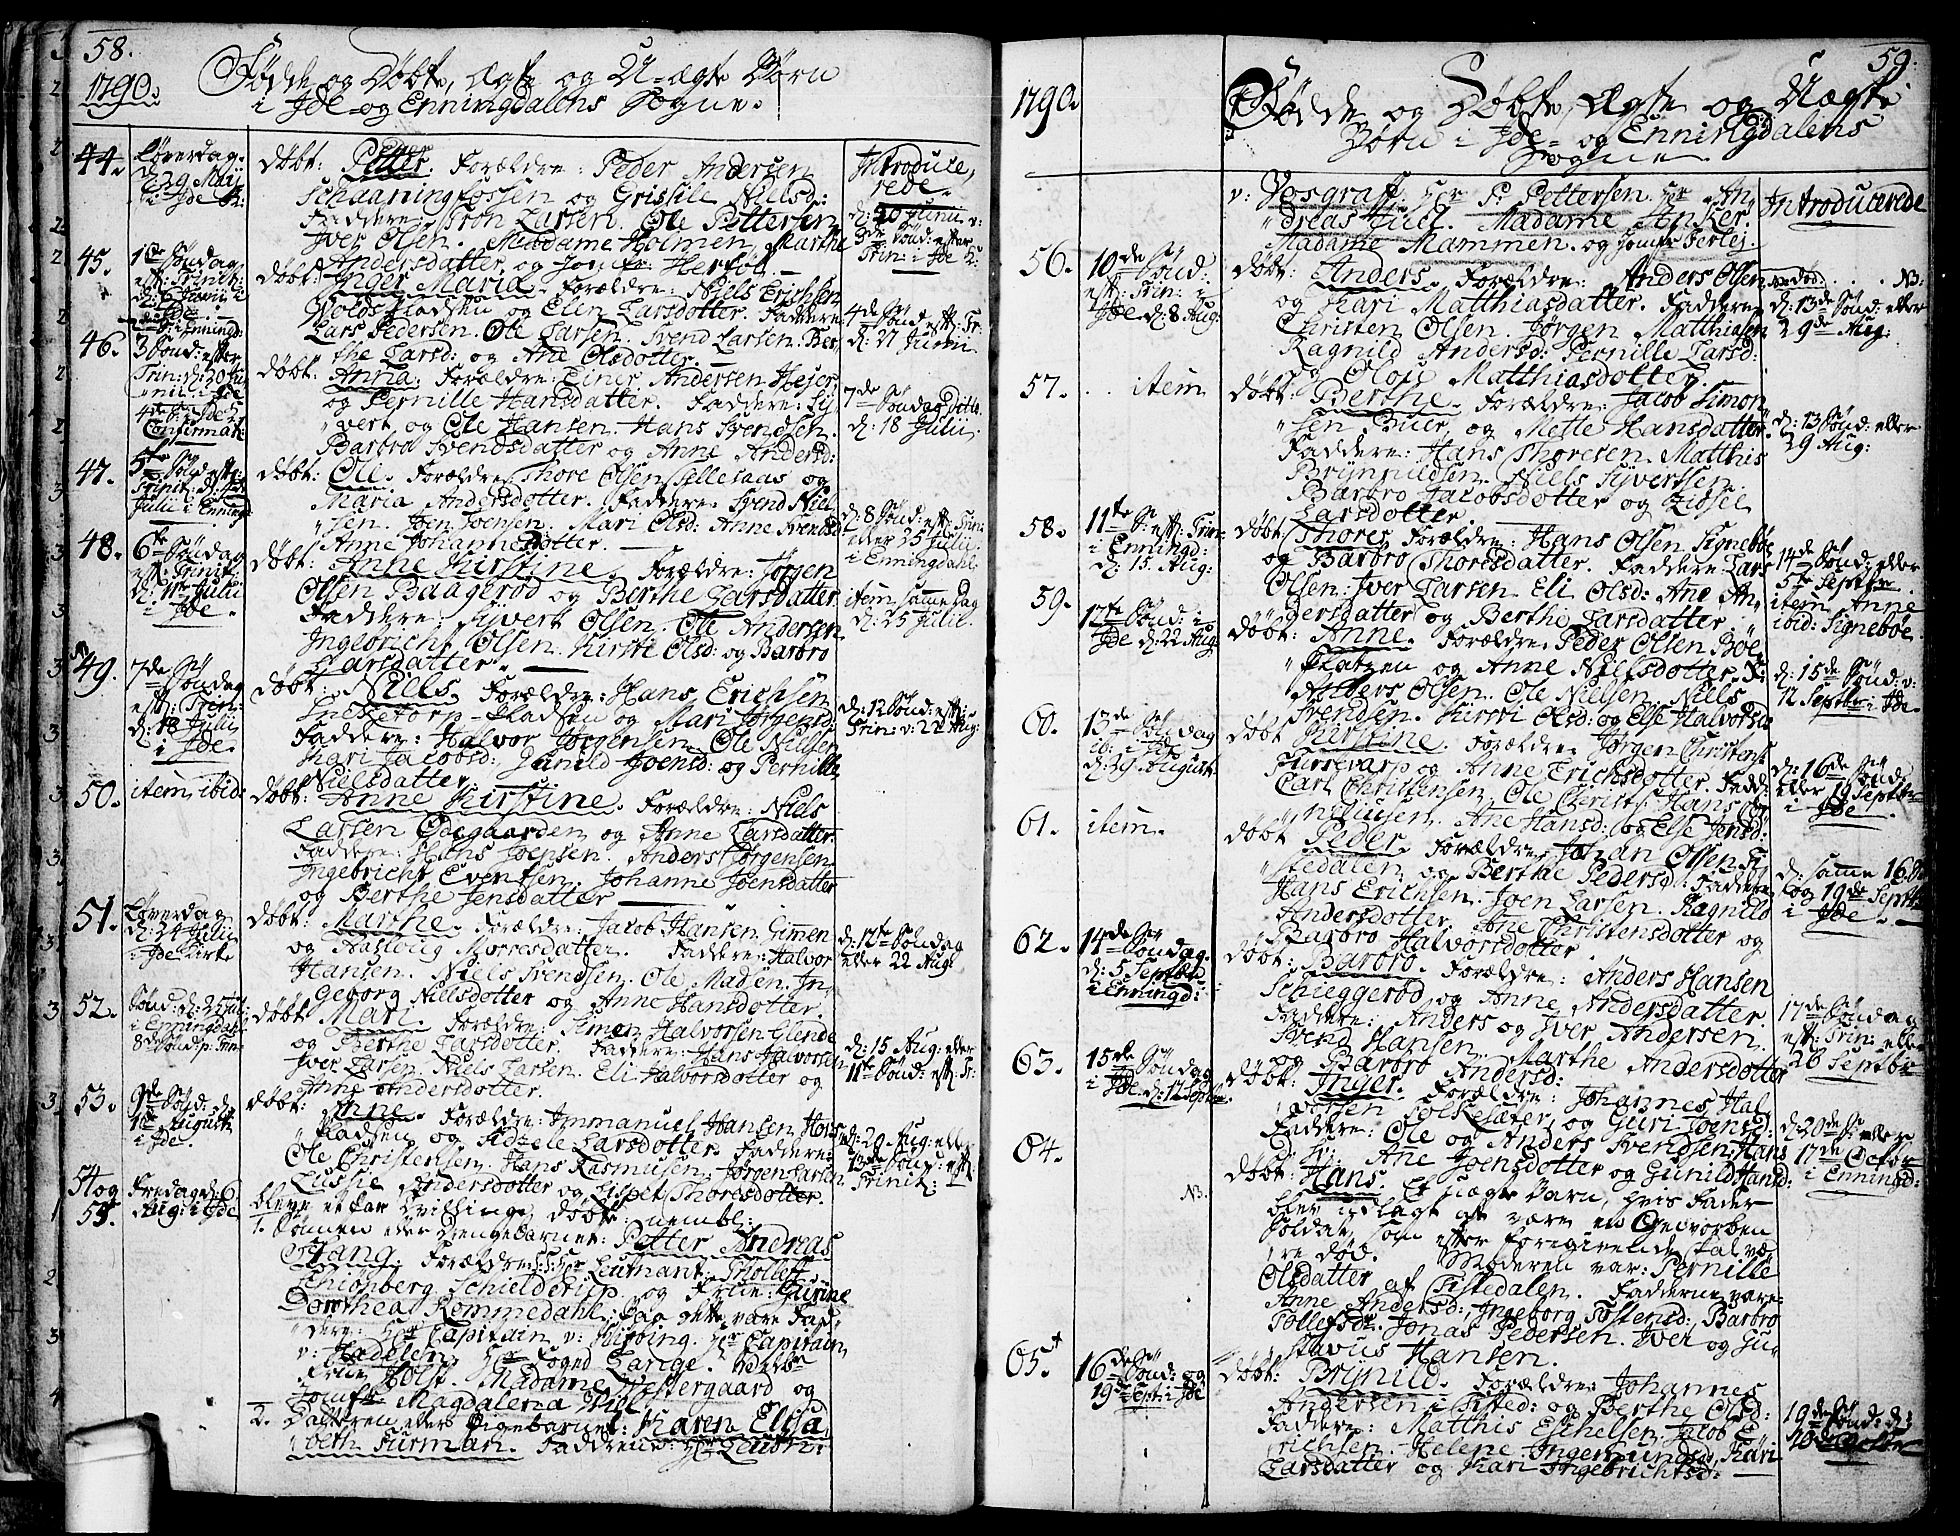 58.
1790.
Fødde og Døbte, Ægte og U-ægte Børn
i Jde og Enningdalens Sogne.
44.
Løverdag.
d. 29 Maij
i Jde K:
døbt: Petter. Forældre: Peder Andersen
Schaaningfossen og Grissille Nielsd:
Faddere: Tron Larsen. Ole Pettersen
Jver Olsen. Madame Holmen, Marthe
Andersdatter og Jomfr: Herføl.
Introduce,
rede.
d: 20 Junii v:
3de Sønd: efter
Trin: i Jde K:
45.
1te Søndag
eft: Trinit:
d: 6 Junii i
Jde.
døbt: Inger Maria. Forældre: Niels Erichsen
Woldspladsen og Elin Larsdotter. Faddere
Lars Pedersen. Ole Larsen. Svend Larsen. Ber-
the Larsd: og Ane Olsdotter.
4de Sønd eft: Tr:
d: 27 Junii
46.
3 Sønd: efter
Trin: d: 20 Ju
nii i Jde
4de i Jde
Confirmat:
døbt: Anna. Forældre: Einer Andersen Hejer
og Pernille Hansdatter. Faddere: Sy
vert, og Ole Hansen. Hans Svendsen.
Barbro Svendsdatter og Anne Andersd:
7de Søndag ditto
d: 18 Julii
47.
5te Sønd eft:
Trinit: d:
Julii i Enningd
døbt: Ole. Forældre: Thore Olsen Sillesaas og
Maria Andersdotter. Faddere: Svend Niel
sen. Joen Joensen. Mari Olsd: Anne Svendsd:
Anne Johannesdotter.
d: 8 Sønd: eft: Trin:
eller 25 Julii
i Enningdahl.
48.
6te Søndag
eft: Trinit:
d: 11te Julii
i Jde.
døbt: Anne Kirstine. Forældre: Jørgen
Olsen Baagerød og Berthe Larsdatter
Faddere: Syvert Olsen. Ole Andersen
Ingebricht Olsen. Kirsti Olsd: og Barbro
Larsdatter.
item samme dag
d: 25 Julii.
49.
7de Søndag
eft: Trin:
d: 18 Julii
i Jde.
døbt: Niels. Forældre: Hans Erichsen
Pladsen og Mari Jørgensd:
Faddere: Halvor Jørgensen. Ole Nielsen
Kari Jacobsd: Gunild Joensd: og Pernille
Nielsdatter.
d: 12 Sønd: eft:
Trin: v: 22 Aug:
50.
item ibid:
døbt: Anne Kirstine. Forældre: Niels
Larsen Ødegaarden og Anne Larsdatter.
Faddere: Hans Joensen. Anders Jørgensen
Ingebricht Eventsen. Johanne Joensdatter
og Berthe Jensdatter
51.
Løverdag
d: 24 Julii
i Jde Kirke
døbt: Marthe. Forældre: Jacob Hansen Gimen
og Aasloug Morresdatter. Faddere: Halvor
Hansen. Niels Svendsen. Ole Madsen. In
geborg Nielsdotter og Anne Hansdotter.
d: 12te Søndag
eller 22 Aug:
52.
Sønd: d: 25 Jul:
i Enningdahl
8de Sønd p: Trin:
døbt: Mari. Forældre: Simen Halvorsen Glende
og Berthe Larsdotter. Faddere: Hans Halvorsen
Jver Larsen. Niels Larsen. Eli Halvorsdotter og
Anne Andersdotter.
d: 15 Aug: eller
11te Sønd: eft: Tr:
53.
9de Sønd: d:
1te Augusti
i Jde.
døbt: Anne. Forældre: Immanuel Hansen Hovs
Pladsen og Sidzele Larsdotter. Faddere:
Ole Christensen. Hans Rasmusen. Jørgen Larsen
Andersdotter og Lispet Thoresdotter.
d: 29 Aug: eller
13de Sønd: eft:
Trinit:
54 og
55.
Fredag d: 6
Aug: i Jde
bleve et Par Tvillinge døbt: nembl:
1. Sønnen eller Drengebarnet: Petter Andreas
Stang. Forældre: S: T: Hr Leutnant Tholleff
Schionberg Schielderup og Frue: Gurine
Dorthea Rommedahl; Paa dette vare Fad
dere: Hr Capitain v: Hr Capitain
v: Hadelen. Hr Foged Lange.
Frue Holst. Madame Westergaard og
Jomfr Magdalena Wiel
2. Datteren eller Pigebarnet: Karen Elisa
beth Furman. Fadderne: Hr Leutn:
59.
1790.
Fødde og Døbte, Ægte og Uægte
Børn i Jde- og Enningdalens
Sogne.
v: Vosgraff. Hr P: Pettersen. Hr An
dreas Juel. Madame Anker.
Madame Mammen. og Jomfr
56.
10de Sønd:
eft: Trin: i
Jde d: 8 Aug:
døbt: Anders. Forældre: Anders Olsen
og Kari Matthiasdatter. Faddere:
Christen Olsen. Jørgen Matthiasen
Ragnild Andersd: Pernille Larsd:
Oloug Matthiasdotter.
Introducerede
NB.
d: 13de Sønd: eller
29de Aug:
57.
item
døbt: Berthe. Forældre: Jacob Simon
sen Buer, og Mette Hansdatter.
Faddere: Hans Thoresen. Matthis
Brynnildsen. Niels Syvertsen.
Barbro Jacobsdotter og Zidsel
Larsdotter
d: 13 Sønd: eller
29 Aug:
58.
11te S: eft: Trin:
i Enningd:
d: 15. Aug:
døbt: Thores. Forældre: Hans Olsen Signebøe
og Barbro Thoresdatter. Faddere: Lars
Olsen. Jver Larsen. Eli Olsd: Ane An,
dersdatter og Berthe Larsdatter.
14de Sønd: eller
5te Septbr
item Anne
ibid: Signebøe.
59.
12te Sønd: i
Jde d: 22 Aug:
døbt: Anne. Forældre: Peder Olsen Bøe
Platzen og Anne Nielsdotter. F:
Anders Olsen. Ole Nielsen. Niels
Svendsen. Kirsti Olsd: og Else Halvorsd:
d: 15de Sønd: v:
12 Septbr i Jde.
60.
13de Søndag
ib: i Jde
d: 29 Augusti
døbt Kirstine. Forældre: Jørgen Christens:
og Anne Erichsdotter. Fadd:
Carl Christensen. Ole Christs: Hans
Ane Hansd: og Else Jensd:
d: 16de Sønd
eller 19 Septbr
i Jde.
61.
item.
døbt Peder. Forældre: Johan Olsen Ti
stedalen, og Berthe Pedersd: Faddere
Hans Erichsen. Joen Larsen. Ragnild
Andersdotter. Ane Christensdotter og
Barbro Halvorsdotter.
d: samme 16
og 19de Septbr
i Jde.
62.
14de Søndag.
d: 5 Septbr
i Enningd:
døbt: Barbro. Forældre: Anders Hansen
Schieggerød og Anne Andersdatter.
Faddere: Anders og Jver Andersen.
Svend Hansen. Marthe Andersdotter
og Barbro Andersd:
17de Søndag
eft: Trin: eller
26 Septbr
63.
15de Søndag
i Jde d: 12 Septbr
døbt: Inger. Forældre: Johannes Hal
vorsen Folkesæter, og Guri Joensd:
Faddere: Ole og Anders Svendsen. Hans
Ane Joensdotter og Gunild Hansd:
d: 20de S: eller
17de Octbr
i Enningd:
64.
NB.
døbt: Hans. Et uægte Barn, hvis Fader
blev udlagt at være en Gevorben
Soldat, som efter foregivende skal væ
re død. Moderen var: Pernille
Olsdatter af Tistedalen. Fadderne vare:
Anne Andersd: Ingeborg Tostensd: Barbro
Tollefsd: Jonas Pedersen. Jver og Gu
stavus Hansen.
65.
16de Sønd: og
19de Sept: i Jde
døbt: Brynild. Forældre: Johannes
Andersen i Tisted: og Berthe Olsd:
Faddere: Matthis Eschelsen. Jacob E
richsen. Helene Ingemundsd: Kari
Larsdatter og Kari Ingebrichtsd:
19de Sønd: d:
10de Octbr